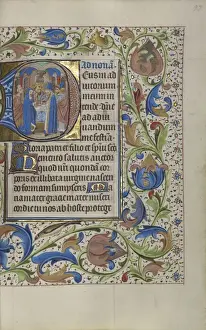 Ad nonā.
Deus in ad
iutorium
meum in
tende Dñe
ad adiu
uandum
me festīa
Gloria patri et filio et spū sco
Memento salutis auctor
quod nr̄i quondam cor
poris ex illibata virgine nascen
do formam sumpseris Ma
ria mater gratie mater miseri
cordie tu nos ab hoste protege